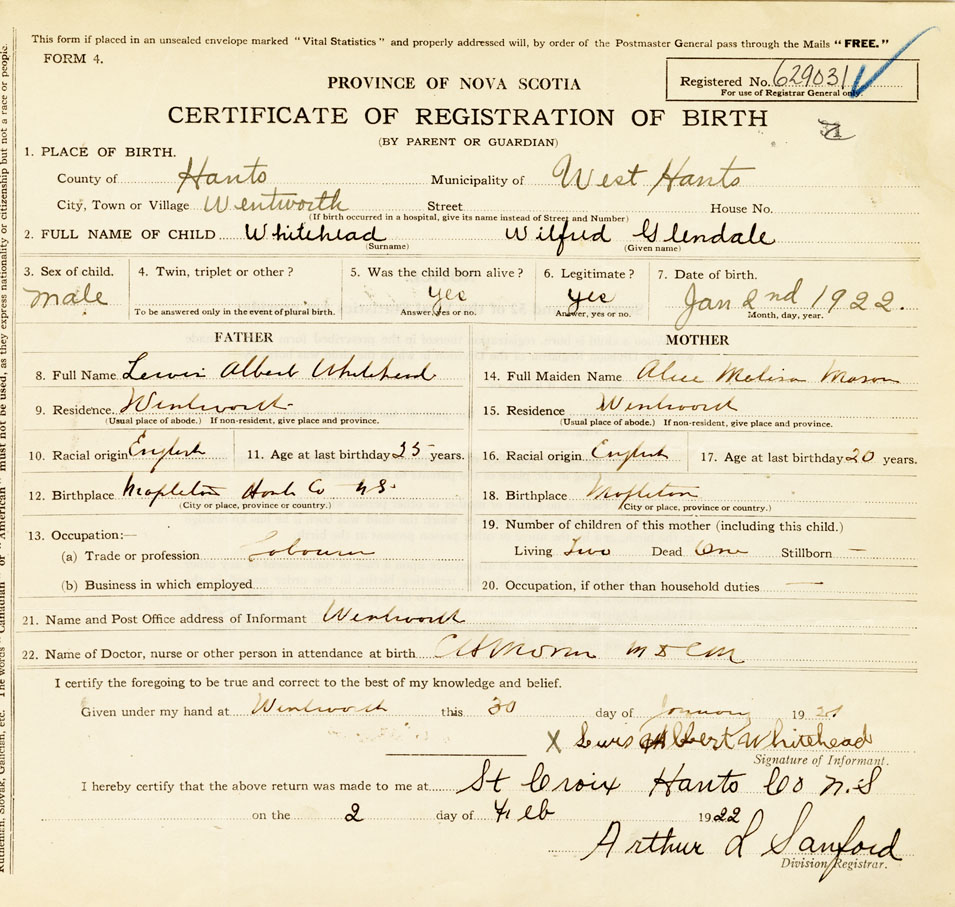 This form if placed in an unsealed envelope marked "Vital Statistics" and properly addressed will, by order of the Postmaster General pass through the Mails "FREE."
FORM 4.
Registered No. 629031
For use of Registrar General only.
PROVINCE OF NOVA SCOTIA
CERTIFICATE OF REGISTRATION OF BIRTH
(BY PARENT OR GUARDIAN)
1. PLACE OF BIRTH.
County of Hants Municipality of West Hants
City, Town or Village Wentworth Street House No.
(If birth occurred in a hospital, give its name instead of Street and Number)
2. FULL NAME OF CHILD Whitehead Wilfred Glendale
(Surname) (Given name)
3. Sex of child. 4. Twin, triplet or other? 5. Was the child born alive? 6. Legitimate? 7. Date of birth.
male yes yes Jan 2nd 1922.
To be answered only in the event of plural birth. Answer, yes or no. Answer, yes or no. Month, day, year.
FATHER MOTHER
8. Full Name Lewis Albert Whitehead 14. Full Maiden Name Alice Melissa Mason
9. Residence. Wentworth 15. Residence Wentworth
(Usual place of abode.) If non-resident, give place and province. (Usual place of abode.) If non-resident, give place and province.
10. Racial origin English 11. Age at last birthday 25 years. 16. Racial origin English 17. Age at last birthday 20 years.
12. Birthplace Mapleton Hants Co NS. 18. Birthplace Mapleton
(City or place, province or country.) (City or place, province or country.)
19. Number of children of this mother (including this child.)
13. Occupation:—
(a) Trade or profession Labourer Living Two Dead One Stillborn —
(b) Business in which employed 20. Occupation, if other than household duties —
21. Name and Post Office address of Informant Wentworth
22. Name of Doctor, nurse or other person in attendance at birth M D CM
I certify the foregoing to be true and correct to the best of my knowledge and belief.
Given under my hand at Wentworth this 30 day of January 19
X Lewis Albert Whitehead
Signature of Informant.
I hereby certify that the above return was made to me at St Croix Hants Co N.S
on the 2 day of Feb 1922
Arthur L Sanford
Division Registrar.
Ruthenian, Slovak, Galician, etc. The words "Canadian" or "American" must not be used, as they express nationality or citizenship but not a race or people.